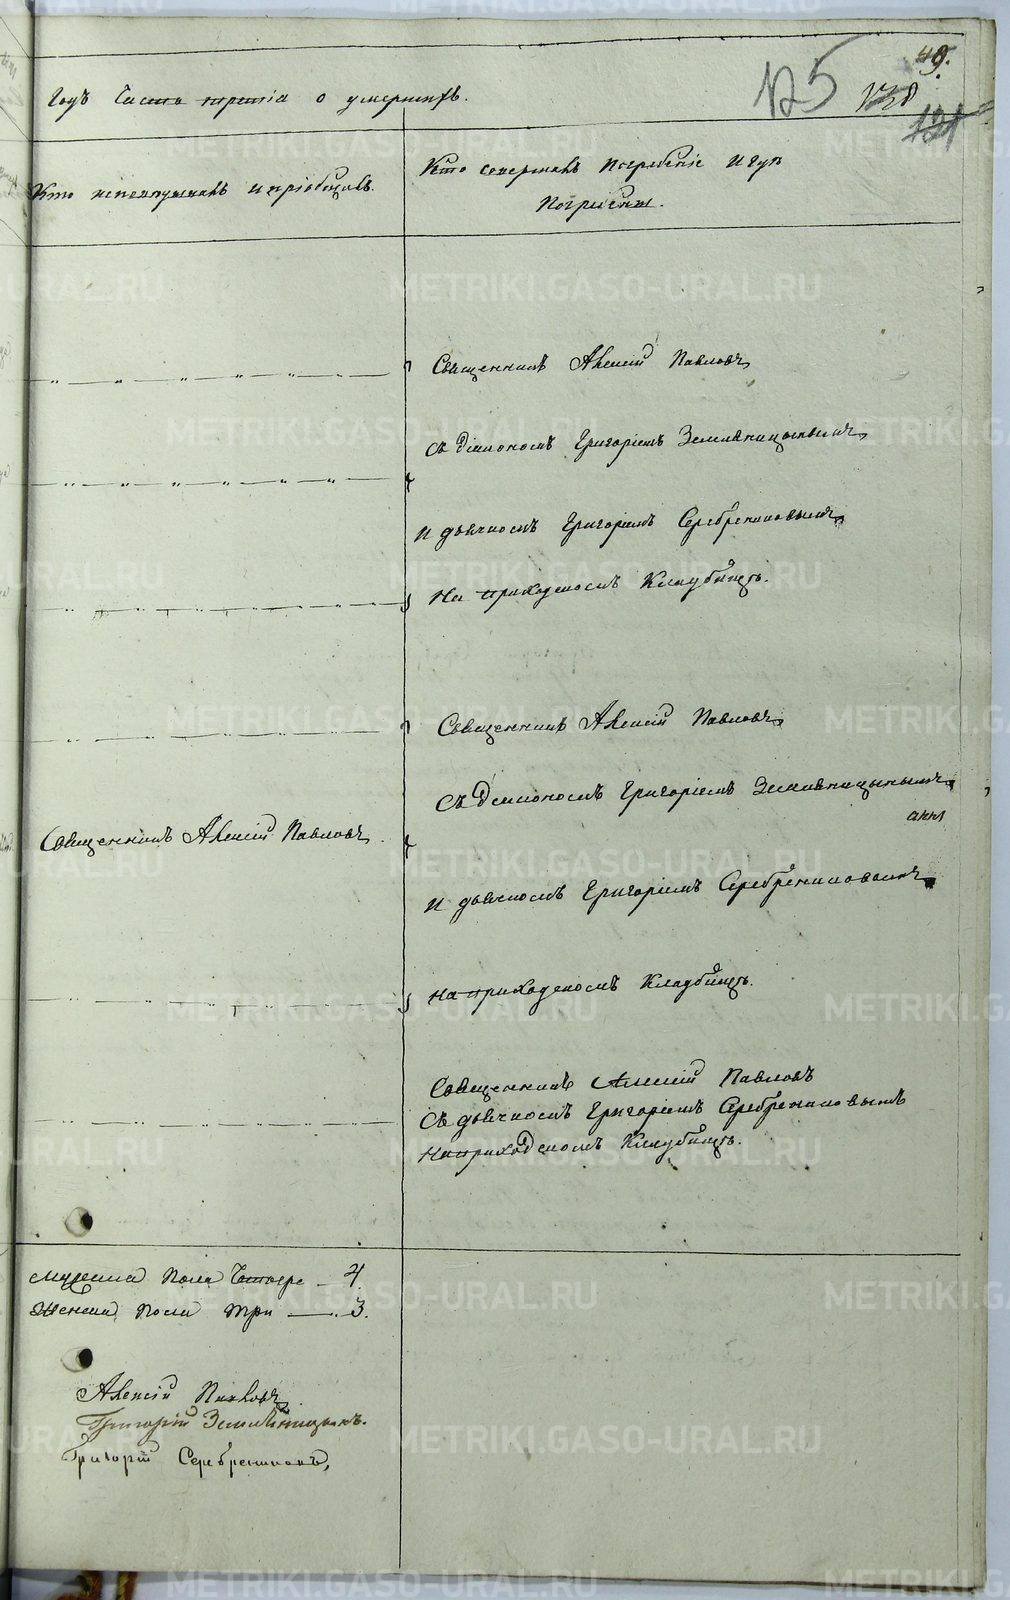 49.
125
138
121
годъ Часть третія о умершихъ.
Кто исповѣдывалъ и пріобщалъ.
Кто совершалъ погребеніе и гдѣ
погребены.
Священникъ Алексій Павловъ
съ діакономъ Григоріемъ Земляницынымъ
и дьячкомъ Григоріемъ Серебрениковымъ
на приходскомъ Кладбищѣ.
Священникъ Алексій Павловъ
съ діакономъ Григоріемъ Земляницынымъ
Священникъ Алексій Павловъ
и дьячкомъ Григоріемъ Серебрениковымъ
на приходскомъ Кладбищѣ.
Священникъ Алексій Павловъ
съ дьячкомъ Григоріемъ Серебрениковымъ
на приходскомъ Кладбищѣ.
мужеска пола четыре — 4
женска пола три — 3.
Алексій Павловъ
Григорій Земляницынъ.
Григорій Серебрениковъ,
METRIKI.GASO-URAL.RU